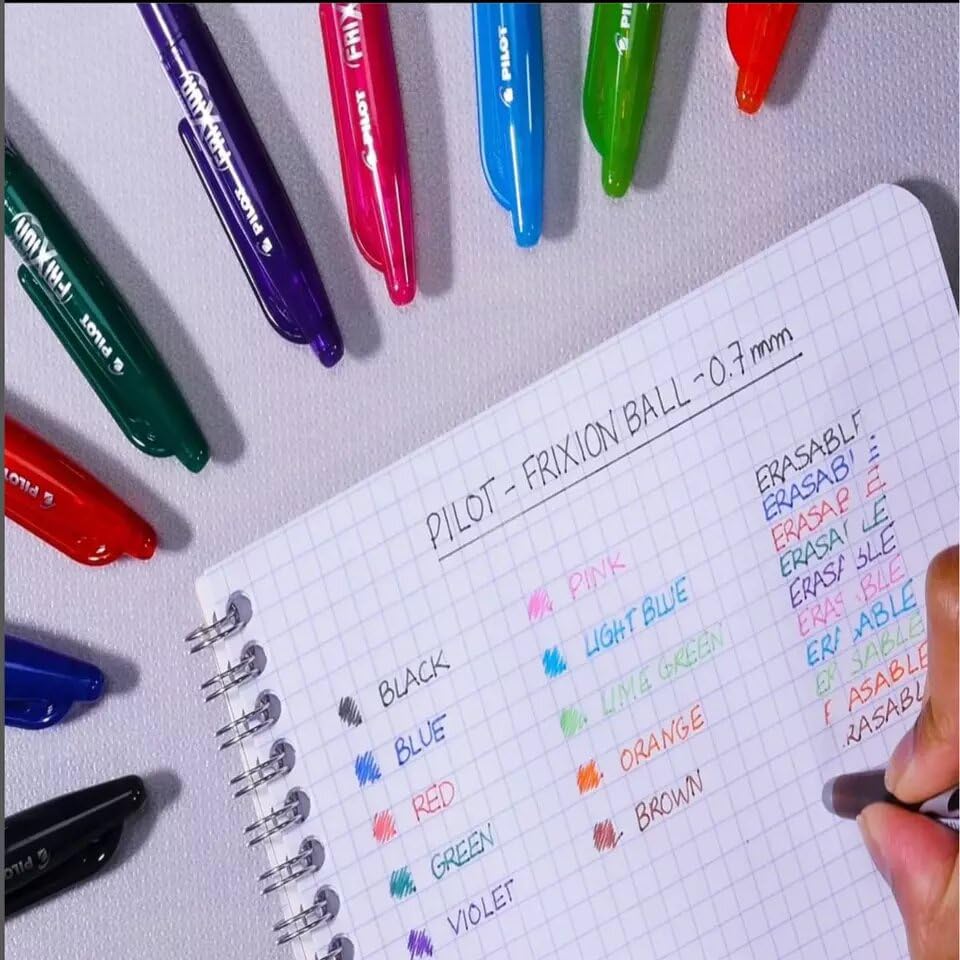 FRIXION
PILOT
FRIXION
PILOT
FRIX
PILOT
PILOT
PIL
FRIXION
PILOT
PILOT
PILOT
PILOT - FRIXION BALL - 0.7 mm
BLACK
BLUE
RED
GREEN
VIOLET
PINK
LIGHT BLUE
LIME GREEN
ORANGE
BROWN
ERASABLE
ERASAB
ERASAB E
ERASA LE
ERAS BLE
ERAS BLE
ER ABLE
E SABLE
ASABLE
RASABL